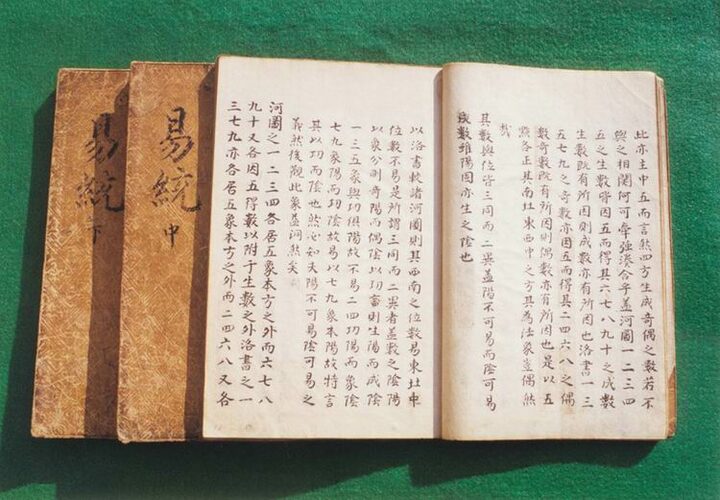 此亦主中五而言然四方生成奇偶之數若不
與之相關何可牽強湊合乎蓋河圖一二三四
五之生數皆因五而得其六七八九十之成數
生數旣有所因則成數亦有所因也洛書一三
五七九之奇數亦因五而得其二四六八之偶
數奇數旣有所因則偶數亦有所因也是以五
點各正其南北東西中之方其為法象豈偶然
哉
其數與位皆三同而二異蓋陽不可易而陰可易
成數雖陽固亦生之陰也
以洛書較諸河圖則其西南之位數易東北中
位數不易是所謂三同而二異者蓋數之陰陽
以象分則奇陽而偶陰以功審則生陽而成陰
一三五象與功俱陽故不易二四功陽而象陰
七九象陽而功陰故易以七九象本陽故特言
其以功而陰也然必知夫陽不可易陰可易之
義然後觀此象益洞然矣
河圖之一二三四各居五象本方之外而六七八
九十又各因五得數以附于生數之外洛書之一
三七九亦各居五象本方之外而二四六八又各
易統 中
易統 下